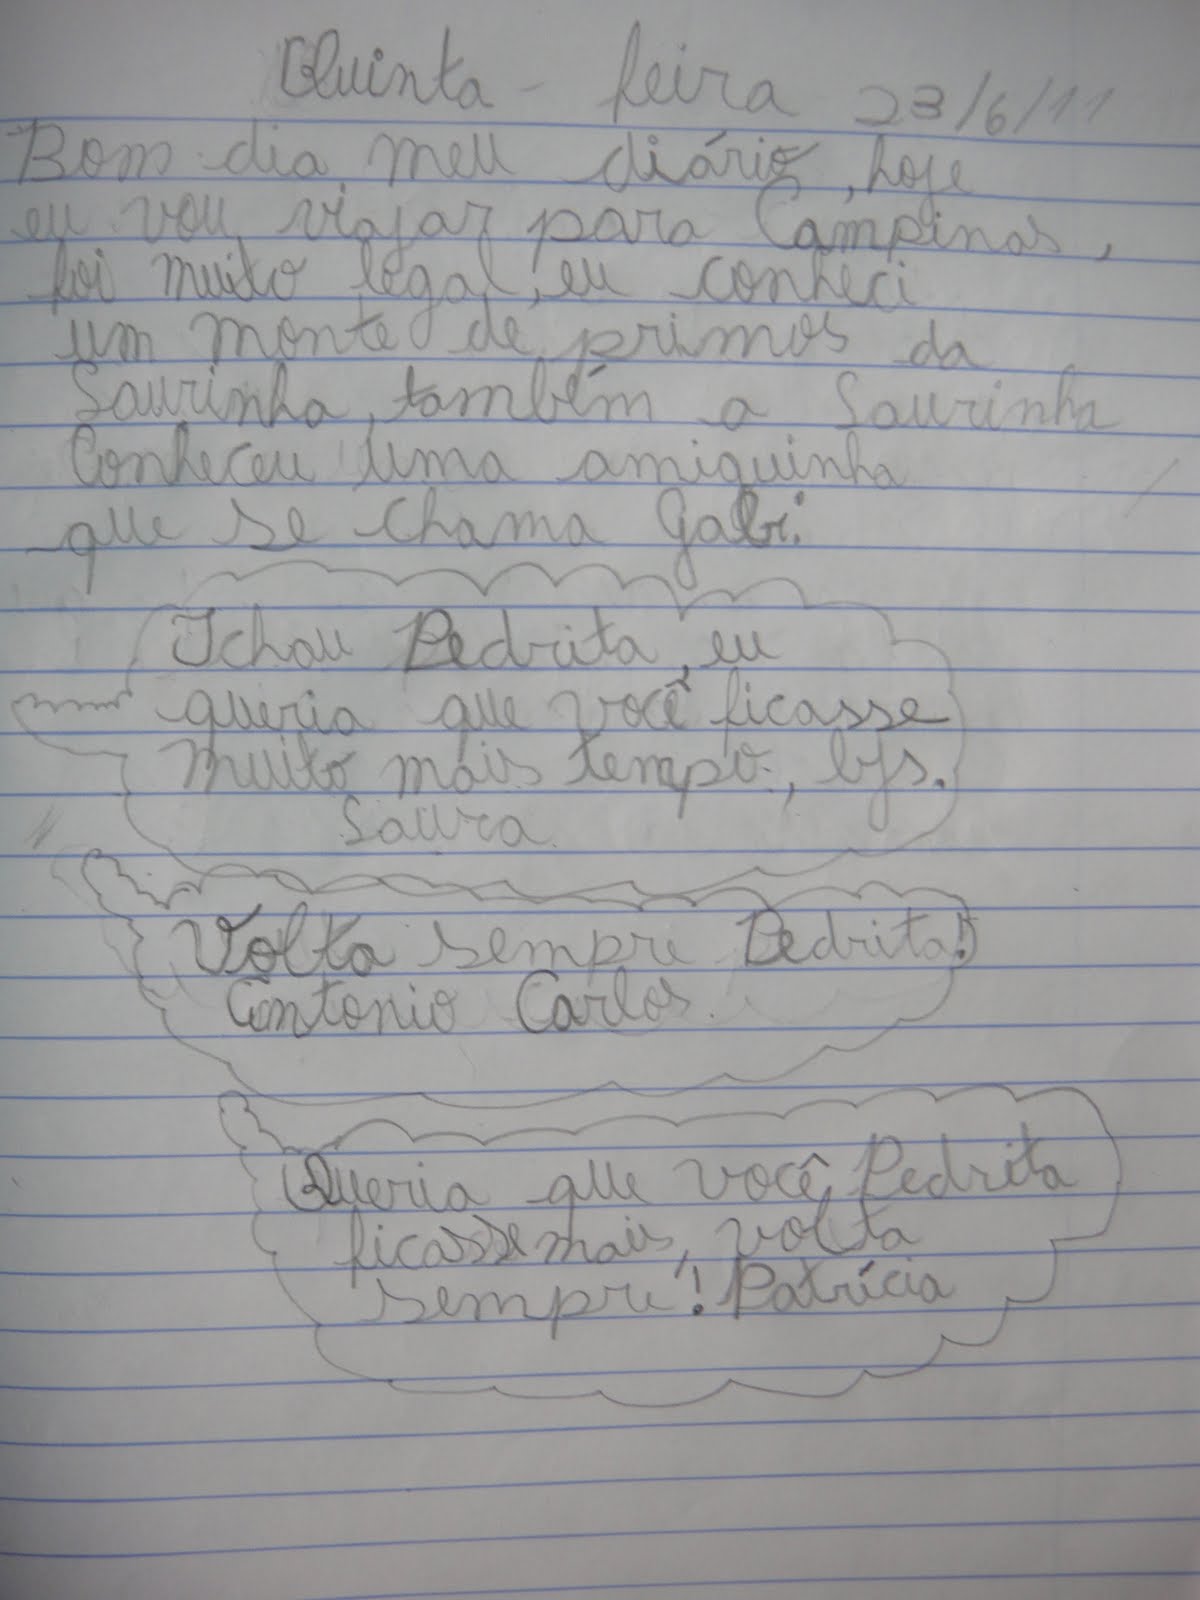 Quinta - feira 23/6/11
Bom dia meu diário, hoje
eu vou viajar para Campinas,
foi muito legal, eu conheci
um monte de primos da
Laurinha, também a Laurinha
Conheceu uma amiguinha
que se chama Gabi.
Tchau Pedrita, eu
queria que você ficasse
muito mais tempo., bjs.
Laura
Volta sempre Pedrita!
Antonio Carlos.
Queria que você, Pedrita
ficasse mais, volta
sempre! Patrícia